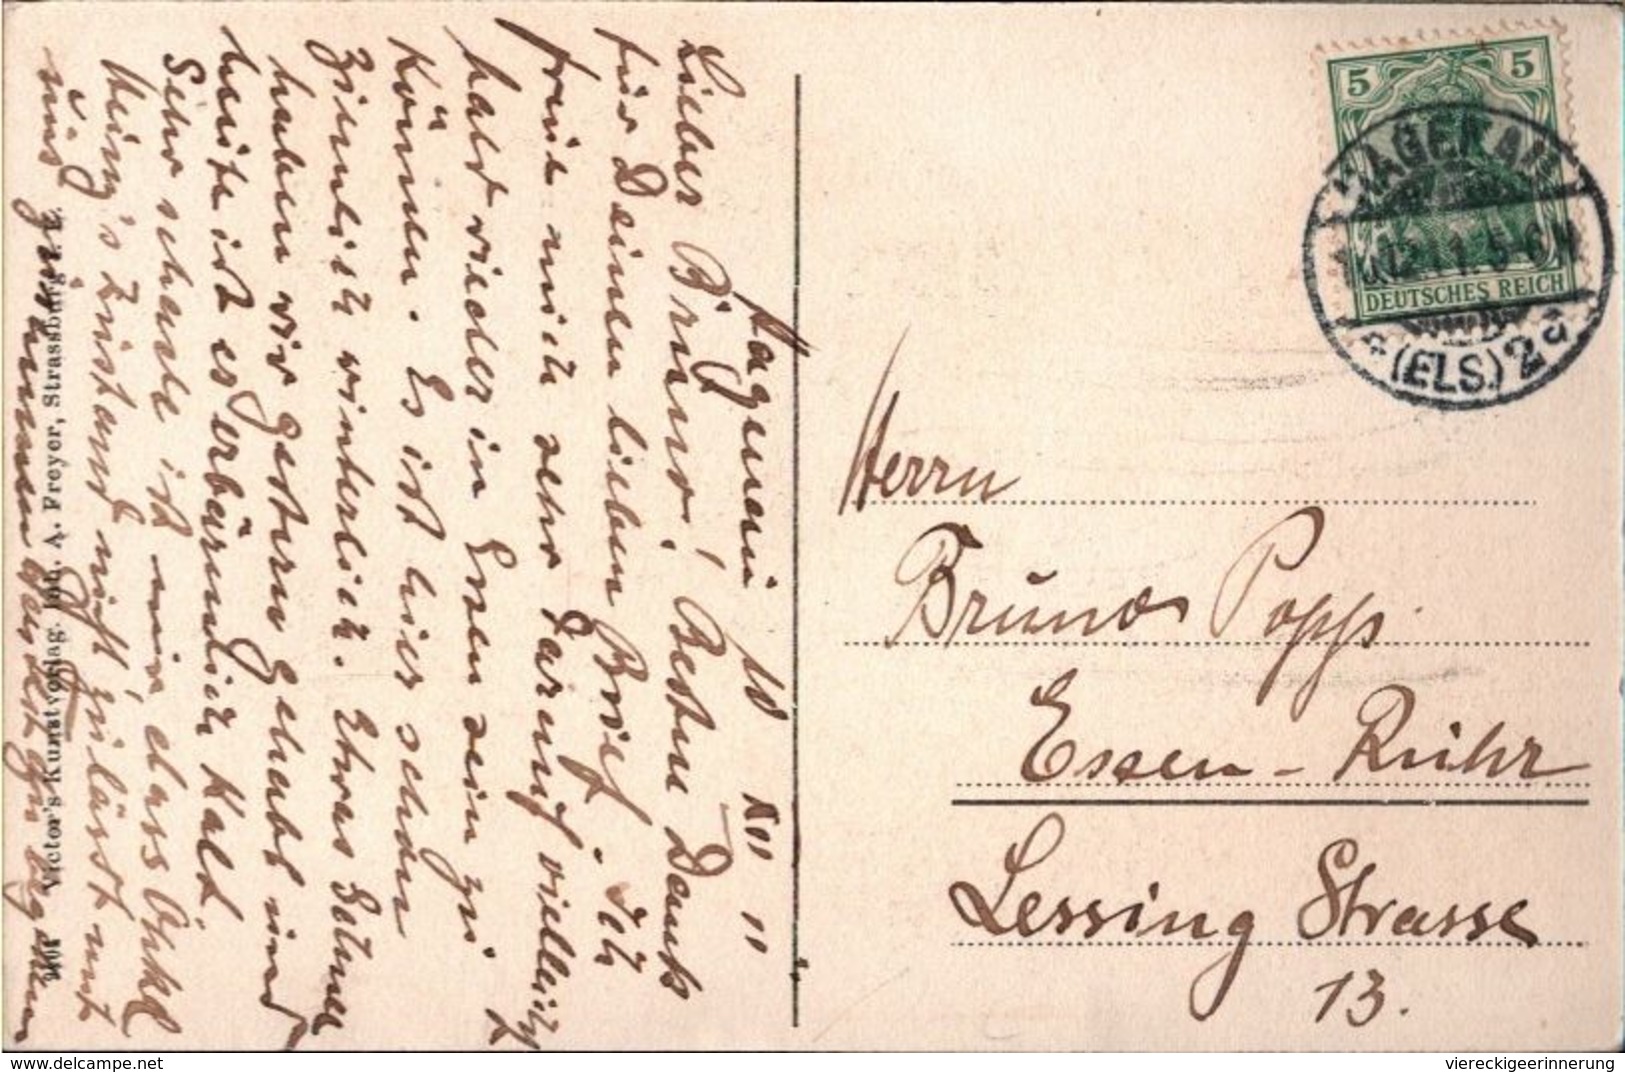 Hagenau 10 XII 11
Lieber Bruno! Besten Dank
für Deinen lieben Brief. Ich
freue mich sehr darauf vielleicht
bald wieder in Essen sein zu
können. Es ist hier schon
ziemlich winterlich. Etwas Schnee
haben wir gestern gehabt und
heute ist es erbärmlich kalt
Sehr schade ist mir dass Onkel
Heing's Zustand nicht zulässt mit
uns zusammen
Victor's Kunstverlag. Inh. A. Freyer, Strassburg i. E.
5 5
DEUTSCHES REICH
HAGENAU
12.11.5-6N
(ELS.) 2
Herrn
Bruno Popp
Essen-Ruhr
Lessing Strasse
13.
viereckigeerinnerung